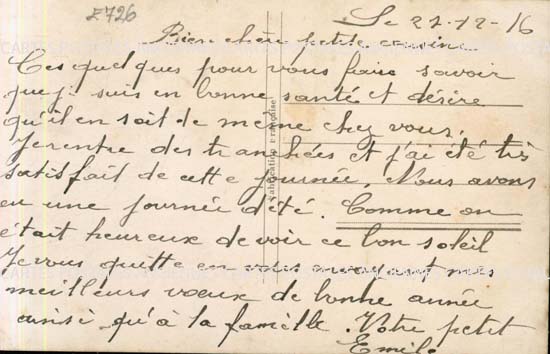 Z726
Le 22-12-16
Bien chère petite cousine
Ces quelques pour vous faire savoir
que je suis en bonne santé et désire
qu'il en soit de même chez vous.
Je rentre des tranchées et j'ai été très
satisfait de cette journée, Nous avons
eu une journée d'été. Comme on
était heureux de voir ce bon soleil
Je vous quitte en vous envoyant mes
meilleurs vœux de bonne année
ainsi qu'à la famille. Votre petit
Emile
Fabrication Française